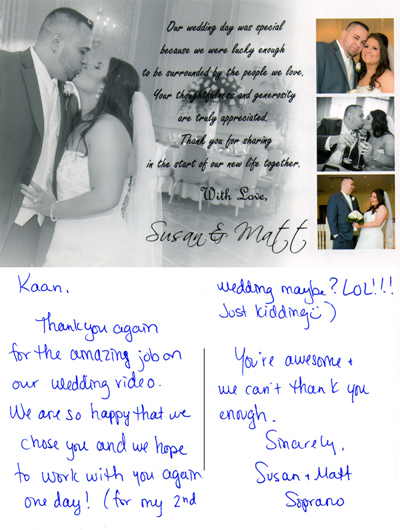 Our wedding day was special
because we were lucky enough
to be surrounded by the people we love.
Your thoughtfulness and generosity
are truly appreciated.
Thank you for sharing
in the start of our new life together.
With Love,
Susan & Matt
Kaan,
Thank you again
for the amazing job on
our wedding video.
We are so happy that we
chose you and we hope
to work with you again
one day! (for my 2nd
wedding maybe? LOL!!!
Just kidding :)
You're awesome +
we can't thank you
enough.
Sincerely,
Susan + Matt
Soprano